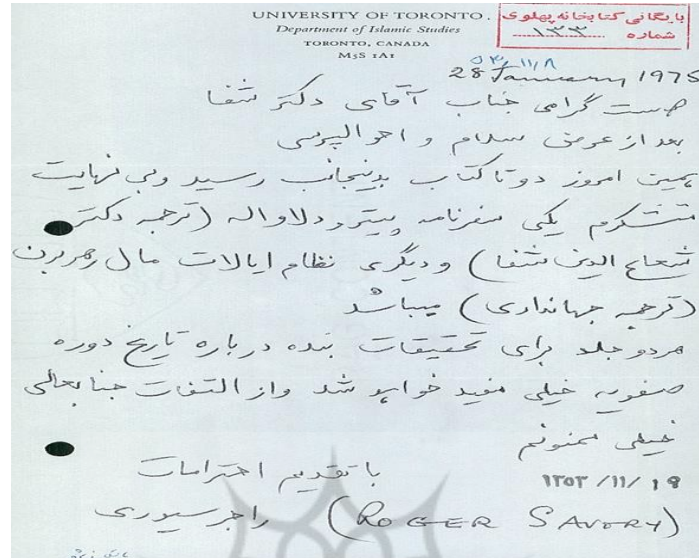 UNIVERSITY OF TORONTO.
Department of Islamic Studies
TORONTO, CANADA
M5S 1A1
بایگانی کتابخانه پهلوی
شماره ۱۳۳
۵۳/۱۱/۸
28 January 1975
دوست گرامی جناب آقای دکتر شفا
بعد از عرض سلام و احوالپرسی
همین امروز دو تا کتاب بدینجانب رسید و بی نهایت
متشکرم یکی سفرنامه پیترو دلاواله (ترجمه دکتر
شعاع الدین شفا) و دیگری نظام ایالات مال رهربرن
(ترجمه جهانداری) میباشد
هر دو جلد برای تحقیقات بنده درباره تاریخ دوره
صفویه خیلی مفید خواهد شد و از التفات جنابعالی
خیلی ممنونم
با تقدیم احترامات
۱۳۵۳/۱۱/۱۹
راجر سیوری (ROGER SAVORY)